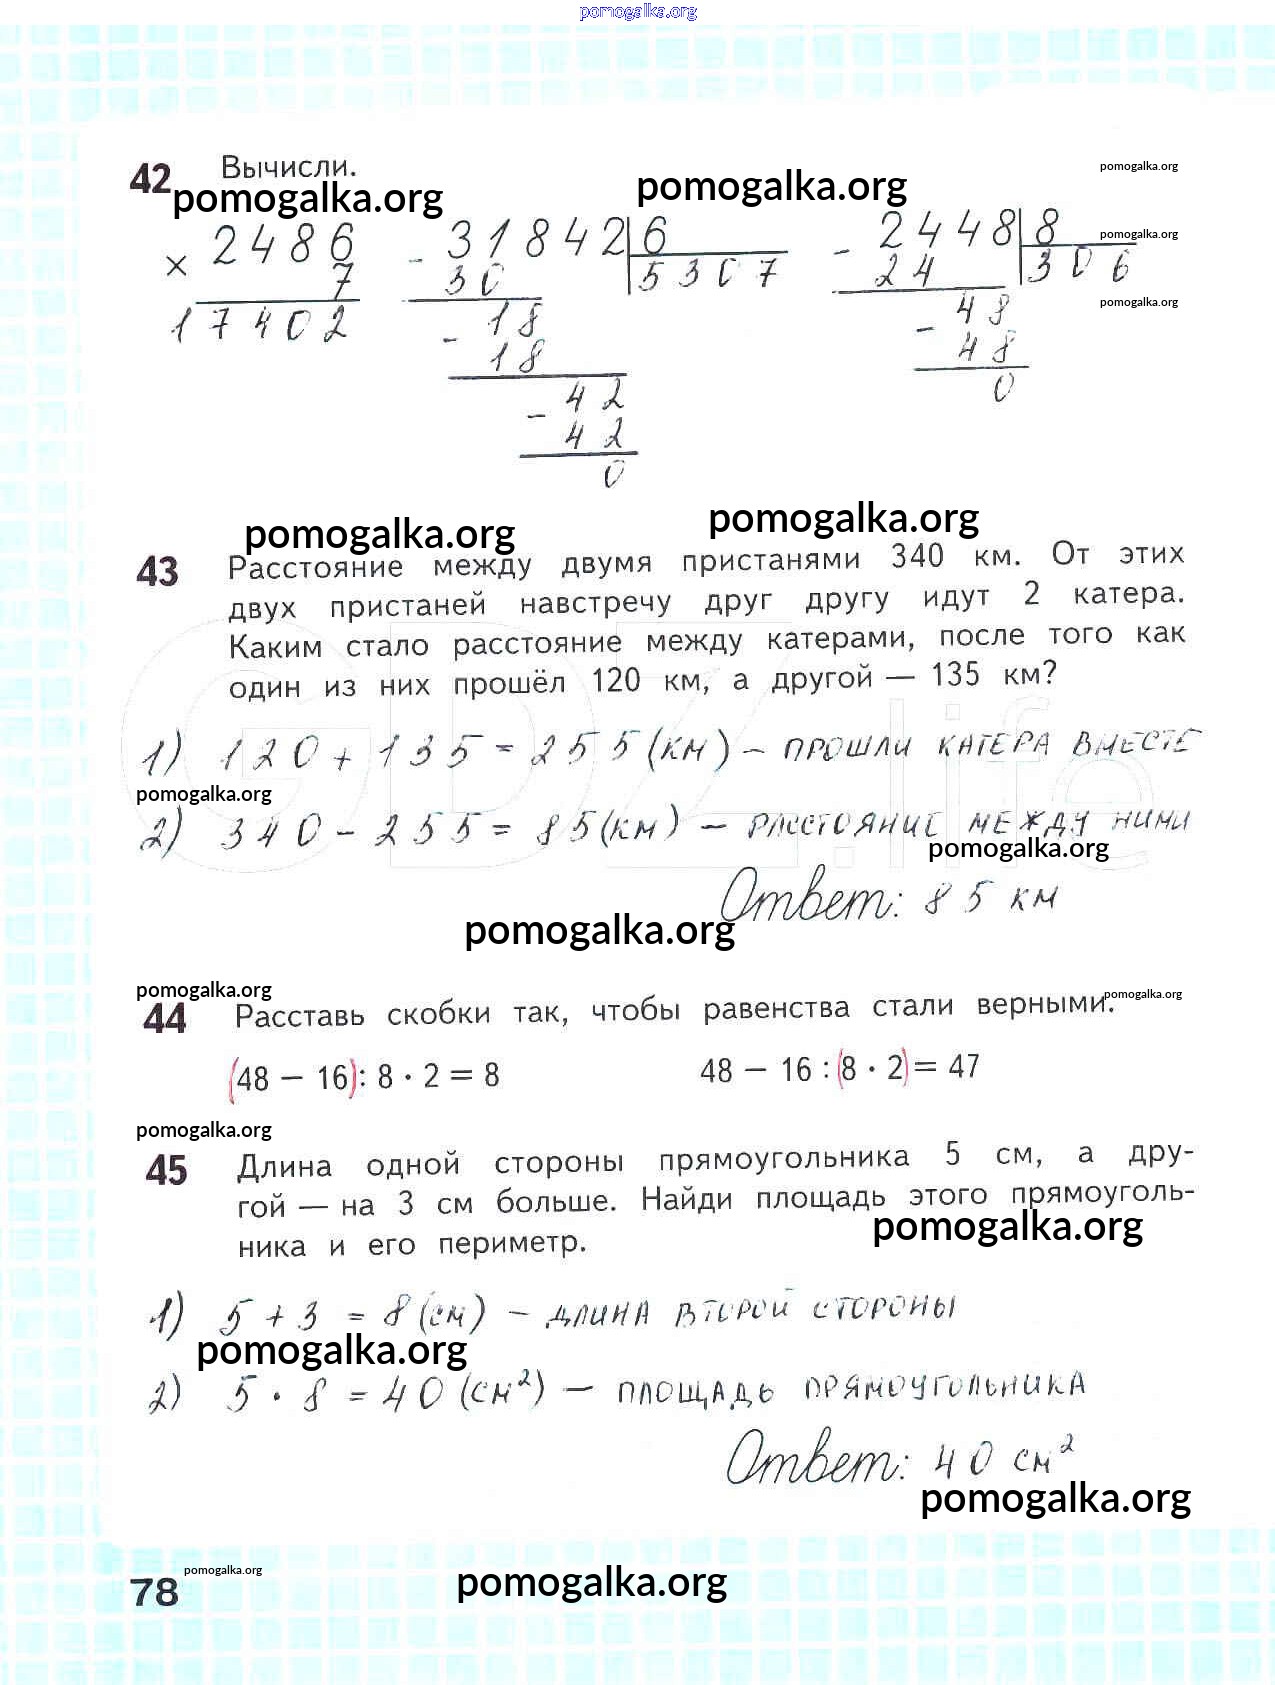 pomogalka.org
42 Вычисли.
pomogalka.org
pomogalka.org
pomogalka.org
× 2486
7
17402
- 31842 6
30 5307
- 18
18
- 42
42
0
- 2448 8
24 306
- 48
48
0
pomogalka.org
pomogalka.org
pomogalka.org
pomogalka.org
43 Расстояние между двумя пристанями 340 км. От этих
двух пристаней навстречу друг другу идут 2 катера.
Каким стало расстояние между катерами, после того как
один из них прошёл 120 км, а другой — 135 км?
GDZ.life
1) 120 + 135 = 255 (км) – прошли катера вместе
pomogalka.org
2) 340 - 255 = 85 (км) – расстояние между ними
pomogalka.org
Ответ: 85 км
pomogalka.org
pomogalka.org
pomogalka.org
44 Расставь скобки так, чтобы равенства стали верными.
(48 − 16) : 8 · 2 = 8 48 − 16 : (8 · 2) = 47
pomogalka.org
45 Длина одной стороны прямоугольника 5 см, а дру-
гой — на 3 см больше. Найди площадь этого прямоуголь-
pomogalka.org
ника и его периметр.
1) 5 + 3 = 8 (см) – длина второй стороны
pomogalka.org
2) 5 · 8 = 40 (см²) – площадь прямоугольника
Ответ: 40 см²
pomogalka.org
78 pomogalka.org
pomogalka.org